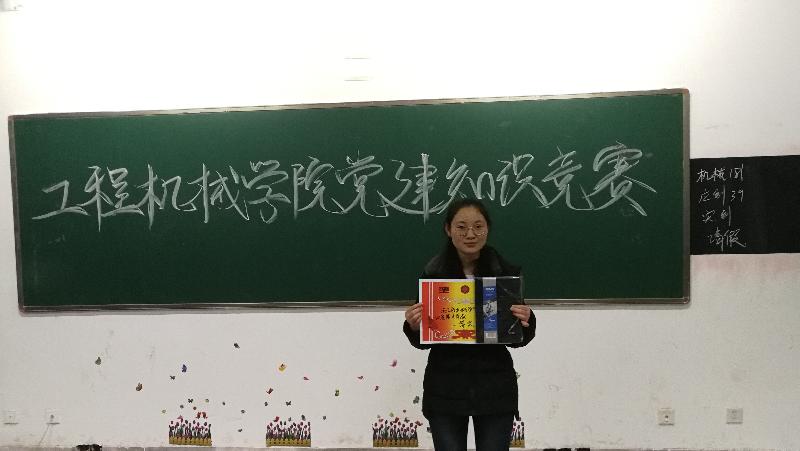 工程机械学院党建知识竞赛
机械181
应到 39
实到
请假